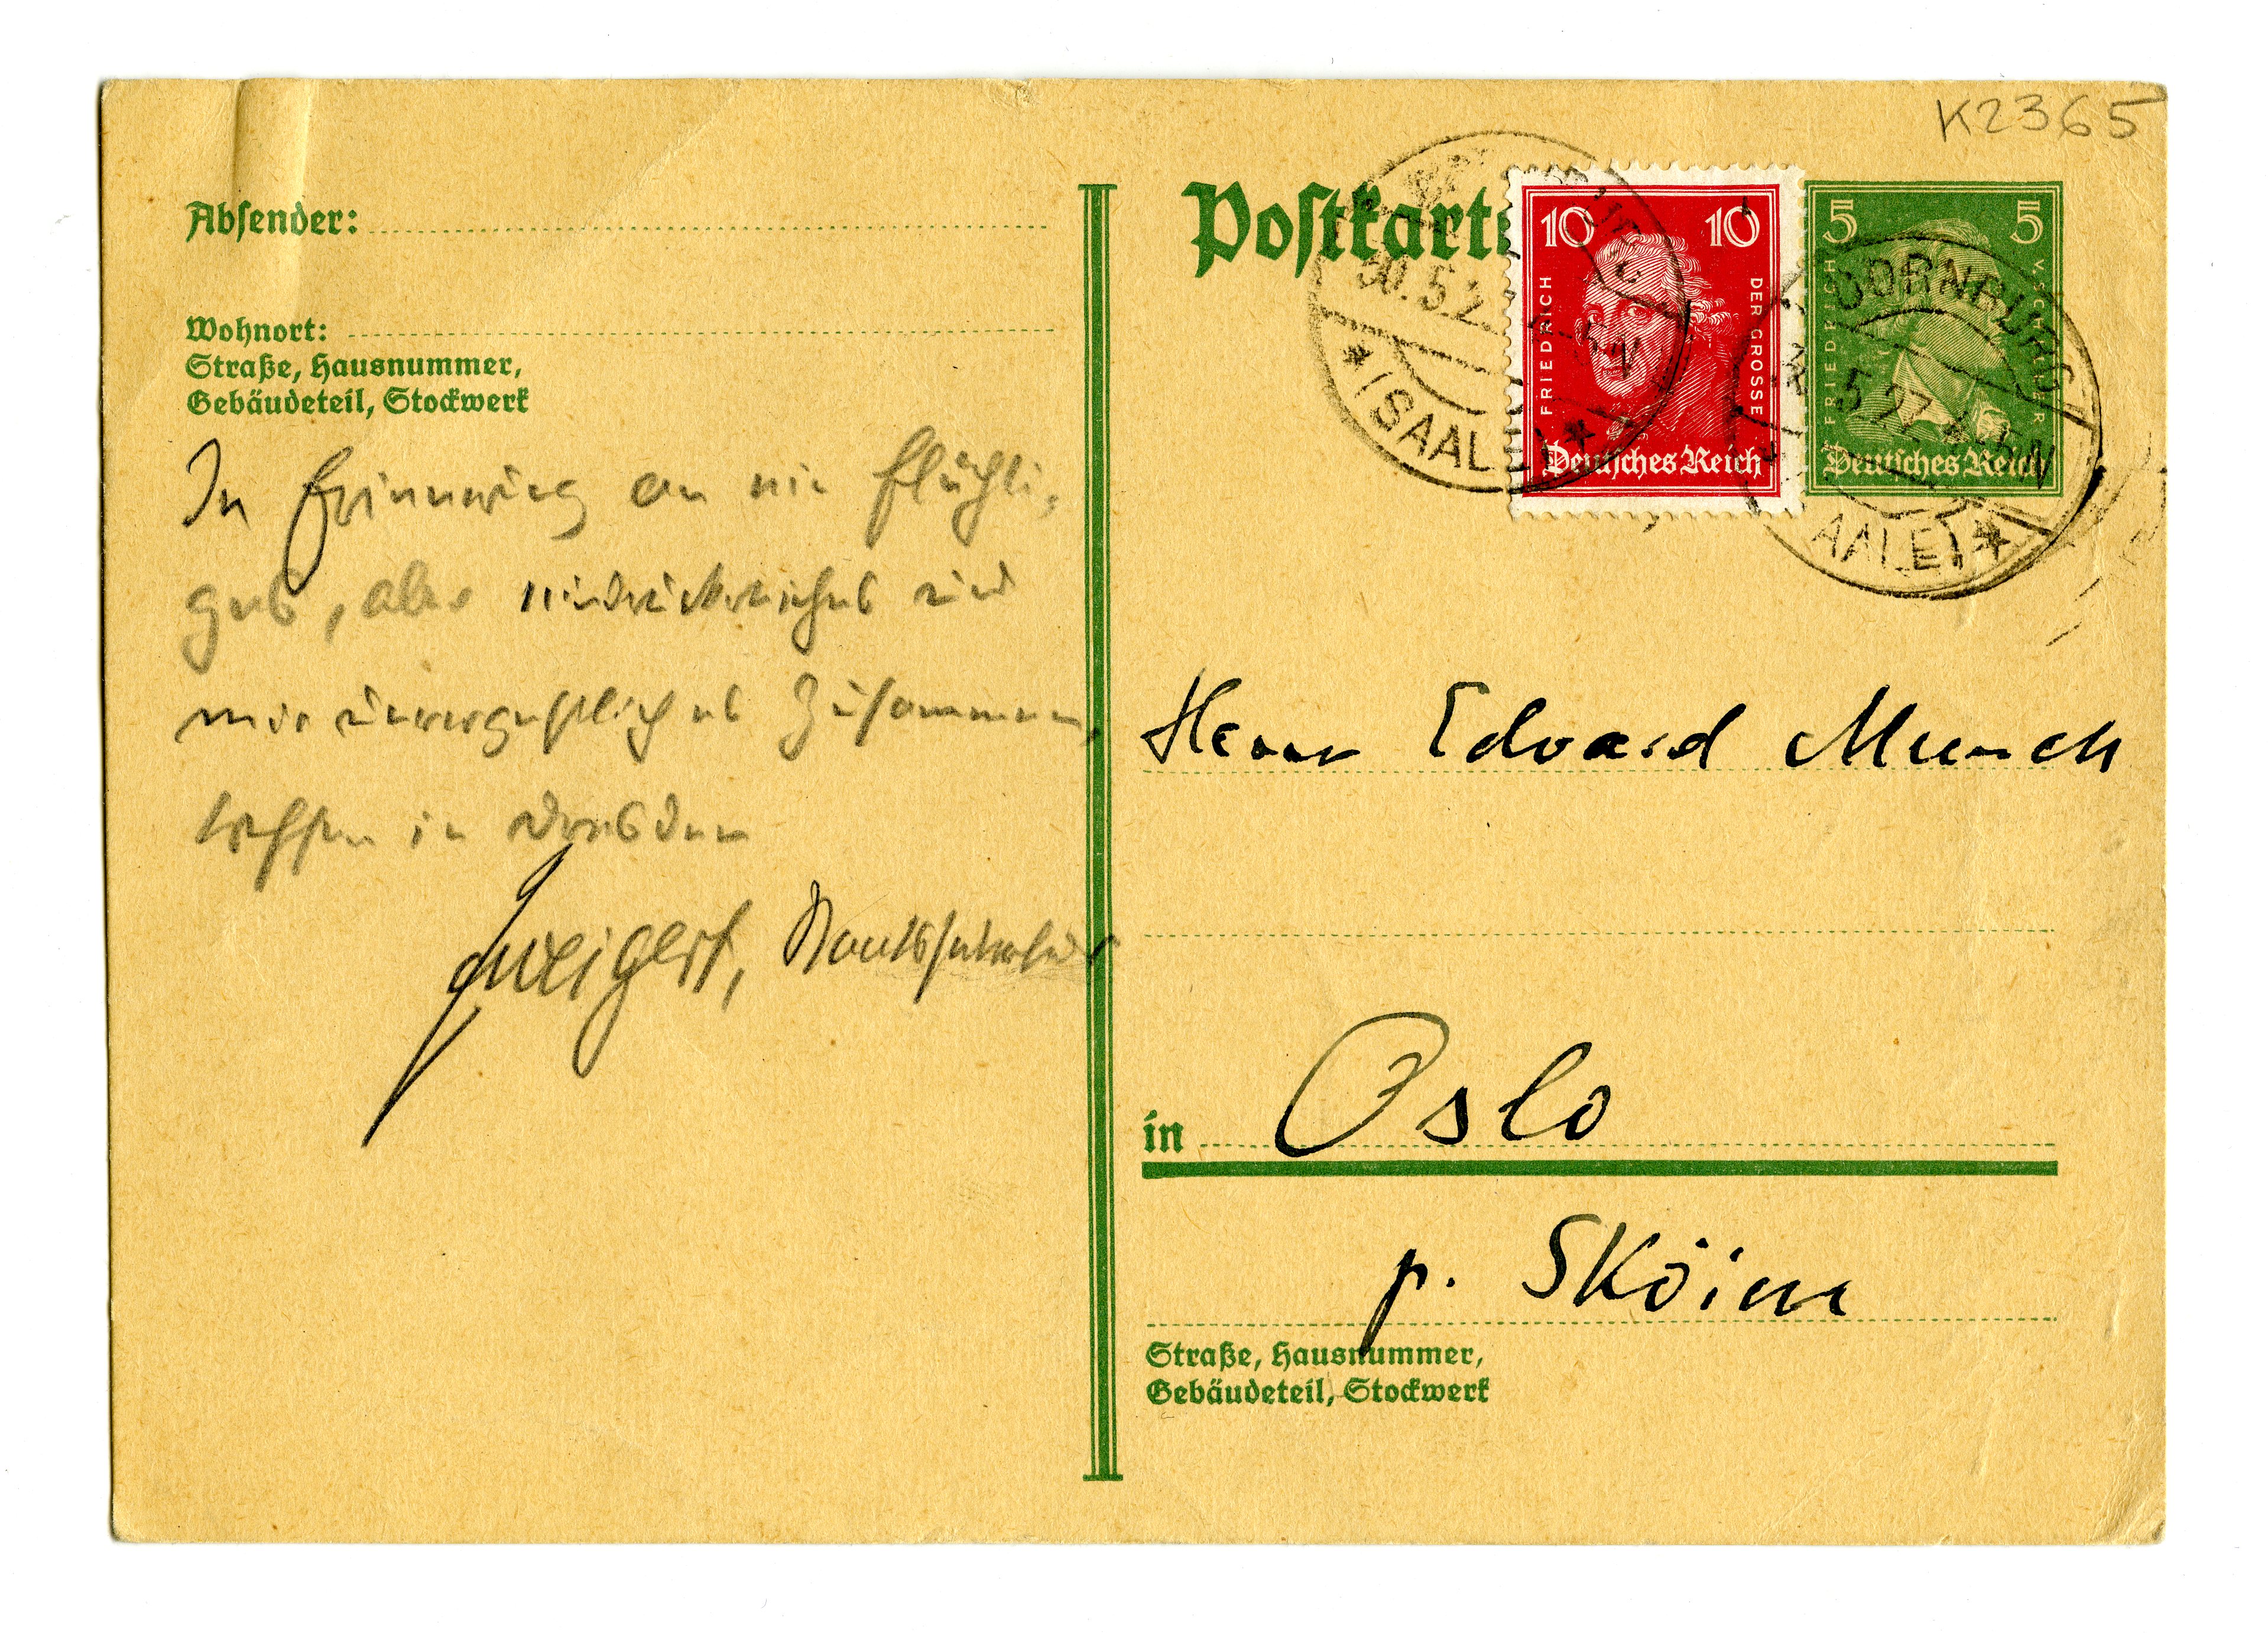 K2365
Absender:
Wohnort:
Straße, Hausnummer,
Gebäudeteil, Stockwerk
In Erinnerung an ein flüchti-
ges, aber eindrucksreiches und
mir unvergeßliches Zusammen-
treffen in Dresden
Staatssekretär
Postkarte
10 10
FRIEDRICH DER GROSSE
Deutsches Reich
5 5
FRIEDRICH V. SCHILLER
Deutsches Reich
30.5.27
(SAALE)
DORNBURG
5 27
(SAALE)
Herrn Edvard Munch
in Oslo
p. Sköien
Straße, Hausnummer,
Gebäudeteil, Stockwerk